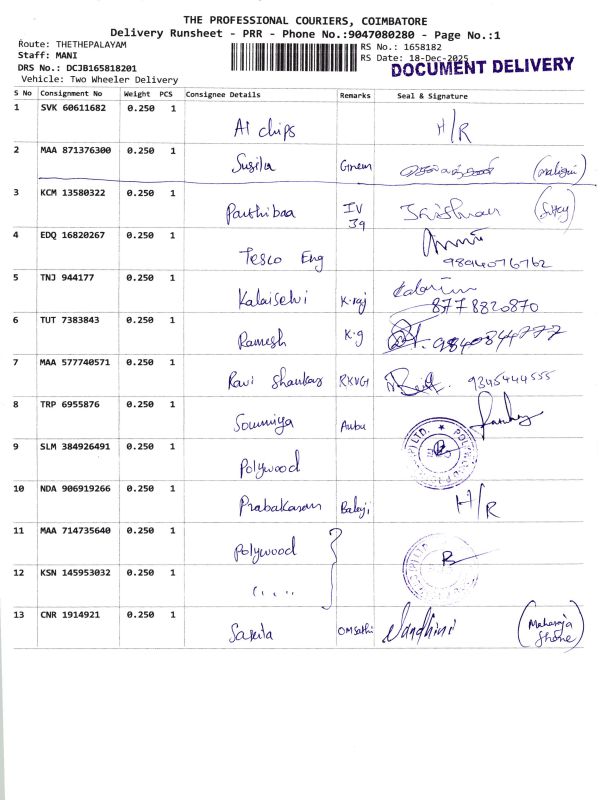 THE PROFESSIONAL COURIERS, COIMBATORE
Delivery Runsheet - PRR - Phone No.:9047080280 - Page No.:1
Route: THETHEPALAYAM
RS No.: 1658182
Staff: MANI
RS Date: 18-Dec-2025
DRS No.: DCJB165818201
DOCUMENT DELIVERY
Vehicle: Two Wheeler Delivery
S No Consignment No Weight PCS Consignee Details Remarks Seal & Signature
1 SVK 60611682 0.250 1 AI chips H/R
2 MAA 871376300 0.250 1 Susila
3 KCM 13580322 0.250 1 Parthibaa IV 39 Krishnan
4 EDQ 16820267 0.250 1 Tesco Eng 9894076762
5 TNJ 944177 0.250 1 Kalaiselvi K.raj 8778820870
6 TUT 7383843 0.250 1 Ramesh K.g 9840844777
7 MAA 577740571 0.250 1 Ravi Shankar RKVG 9345444555
8 TRP 6955876 0.250 1 Soumiya Anbu
9 SLM 384926491 0.250 1 Polywood
10 NDA 906919266 0.250 1 Prabakaran Balaji H/R
11 MAA 714735640 0.250 1 Polywood
12 KSN 145953032 0.250 1 ....
13 CNR 1914921 0.250 1 Sarita OMsathi Nandhini (Maharaja